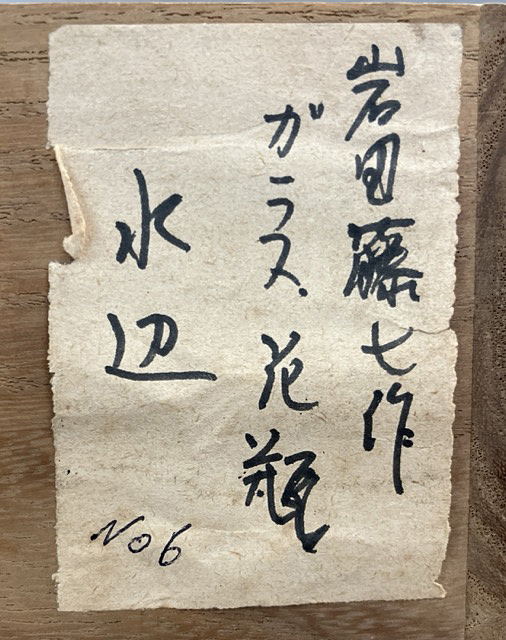 岩田藤七作
ガラス.花瓶
水辺
No 6